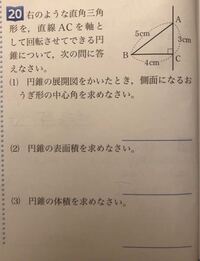 20 右のような直角三角
形を，直線 AC を軸と
して回転させてできる円
錐について，次の問に答
えなさい。
A
5cm
3cm
B
C
4cm
(1) 円錐の展開図をかいたとき，側面になるお
うぎ形の中心角を求めなさい。
(2) 円錐の表面積を求めなさい。
(3) 円錐の体積を求めなさい。